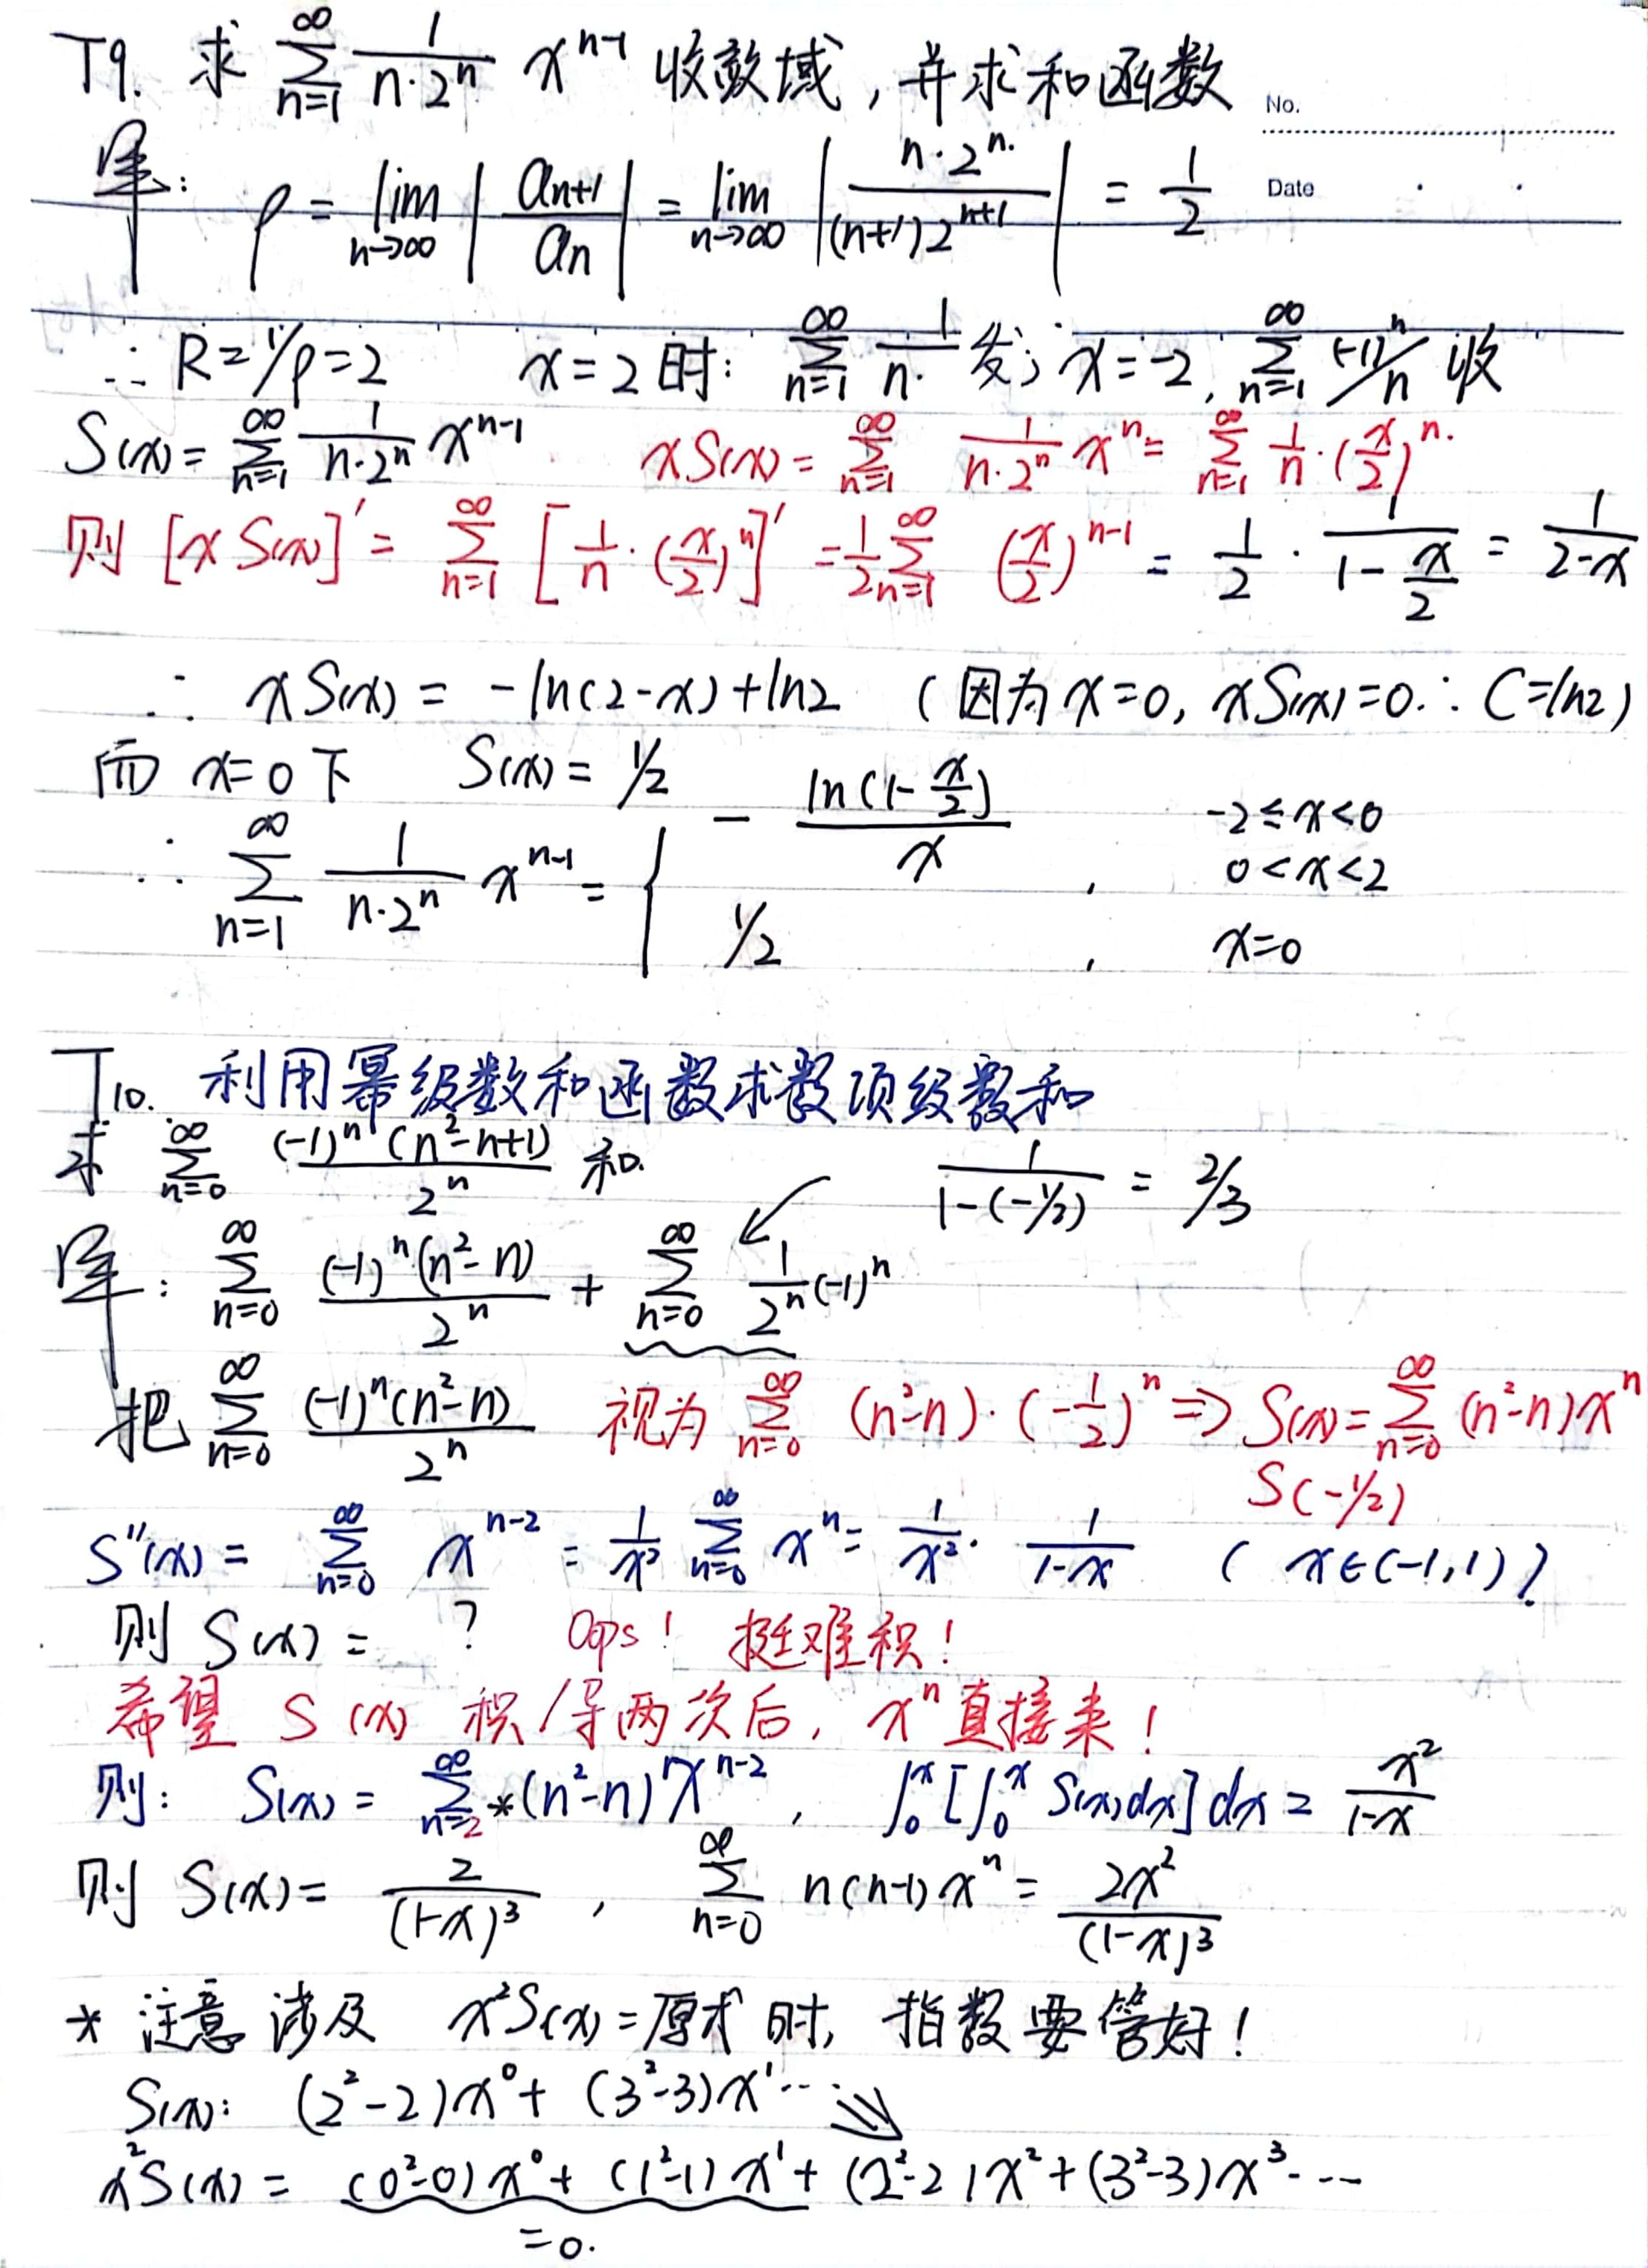 T9. 求 ∑_{n=1}^{∞} \frac{1}{n·2^n} x^{n-1} 收敛域，并求和函数
No.
Date
解: ρ = lim_{n→∞} |\frac{a_{n+1}}{a_n}| = lim_{n→∞} |\frac{n·2^n}{(n+1)2^{n+1}}| = \frac{1}{2}
∴ R = 1/ρ = 2 x=2时: ∑_{n=1}^{∞} \frac{1}{n} 发; x=-2, ∑_{n=1}^{∞} (-1)^n/n 收
S(x) = ∑_{n=1}^{∞} \frac{1}{n·2^n} x^{n-1} xS(x) = ∑_{n=1}^{∞} \frac{1}{n·2^n} x^n = ∑_{n=1}^{∞} \frac{1}{n}·(\frac{x}{2})^n.
则 [xS(x)]' = ∑_{n=1}^{∞} [\frac{1}{n}·(\frac{x}{2})^n]' = \frac{1}{2}∑_{n=1}^{∞} (\frac{x}{2})^{n-1} = \frac{1}{2}·\frac{1}{1-\frac{x}{2}} = \frac{1}{2-x}
∴ xS(x) = -ln(2-x)+ln2 (因为x=0, xS(x)=0∴ C=ln2)
而 x=0下 S(x) = 1/2
∴ ∑_{n=1}^{∞} \frac{1}{n·2^n} x^{n-1} = { -\frac{ln(1-\frac{x}{2})}{x}, -2≤x<0 0<x<2
1/2, x=0
T10. 利用幂级数和函数求数项级数和
求 ∑_{n=0}^{∞} \frac{(-1)^n(n^2-n+1)}{2^n} 和. \frac{1}{1-(-1/2)} = 2/3
解: ∑_{n=0}^{∞} \frac{(-1)^n(n^2-n)}{2^n} + ∑_{n=0}^{∞} \frac{1}{2^n}(-1)^n
把 ∑_{n=0}^{∞} \frac{(-1)^n(n^2-n)}{2^n} 视为 ∑_{n=0}^{∞} (n^2-n)·(-\frac{1}{2})^n ⇒ S(x)=∑_{n=0}^{∞} (n^2-n)x^n
S(-1/2)
S''(x) = ∑_{n=0}^{∞} x^{n-2} = \frac{1}{x^2} ∑_{n=0}^{∞} x^n = \frac{1}{x^2}·\frac{1}{1-x} (x∈(-1,1))
则 S(x) = ? Oops! 挺难积!
希望 S(x) 积/导两次后, x^n 直接来!
则: S(x) = ∑_{n=2}^{∞}*(n^2-n)x^{n-2}, ∫_0^x[∫_0^x S(x)dx]dx = \frac{x^2}{1-x}
则 S(x) = \frac{2}{(1-x)^3}, ∑_{n=0}^{∞} n(n-1)x^n = \frac{2x^2}{(1-x)^3}
* 注意 涉及 x^2S(x)=原求 时, 指数要管好!
S(x): (2^2-2)x^0+ (3^2-3)x^1 ··· ⇘
x^2S(x) = (0^2-0)x^0+ (1^2-1)x^1+ (2^2-2)x^2+(3^2-3)x^3 ···
=0.